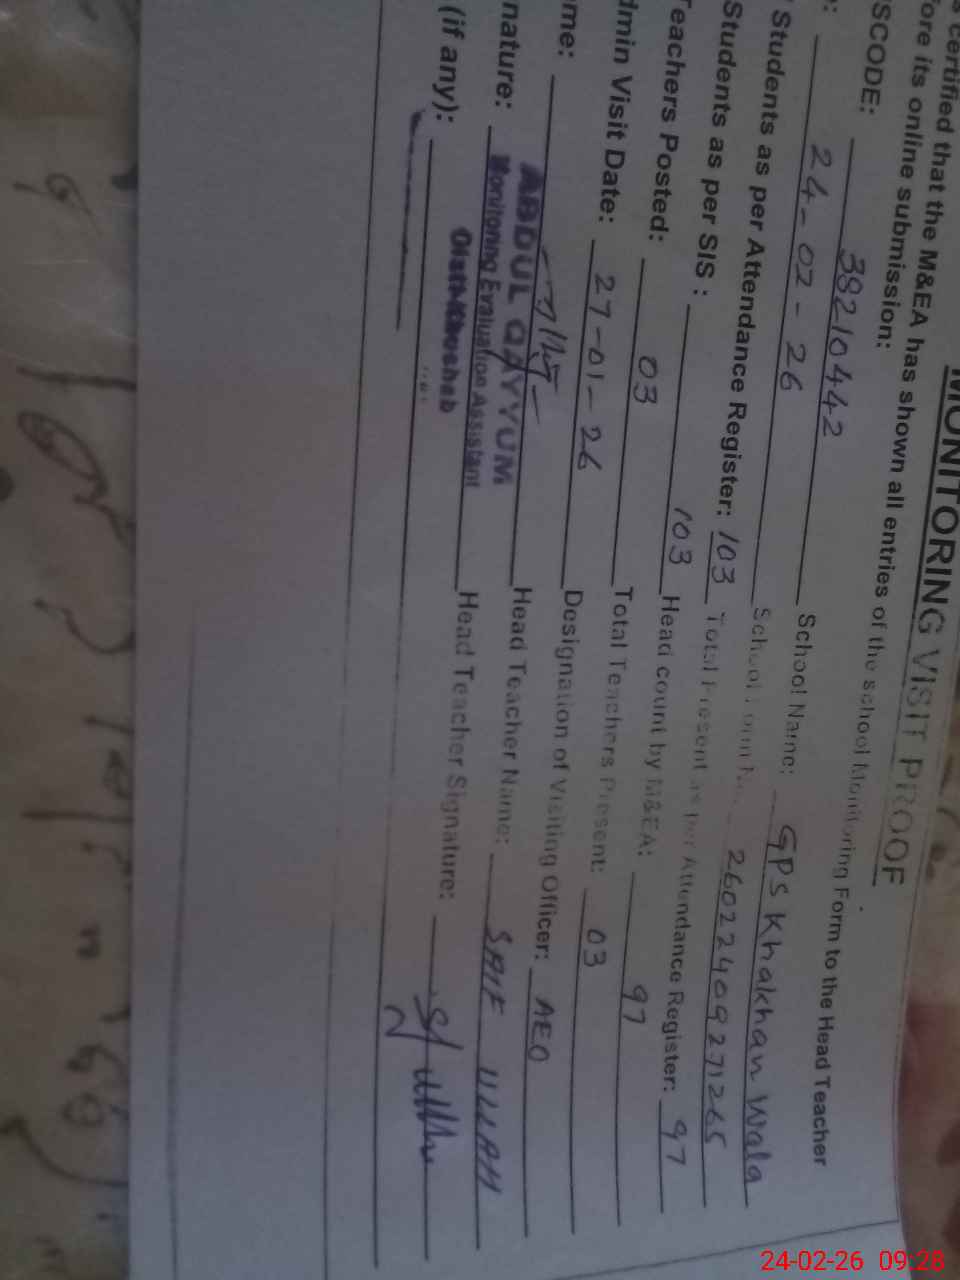 MONITORING VISIT PROOF
certified that the M&EA has shown all entries of the school Monitoring Form to the Head Teacher
fore its online submission:
SCODE: 38210442 School Name: GPS Khakhan Wala
e: 24-02-26 School Form No. 26022409271265
Students as per Attendance Register: 103 Total Present as per Attendance Register: 97
Students as per SIS: 103 Head count by M&EA: 97
Teachers Posted: 03 Total Teachers Present: 03
dmin Visit Date: 27-01-26 Designation of Visiting Officer: AEO
ome: ABDUL QAYYUM Head Teacher Name: SAIF ULLAH
Monitoring Evaluation Assistant
nature: Distt. Khushab Head Teacher Signature:
(if any):
24-02-26 09:28